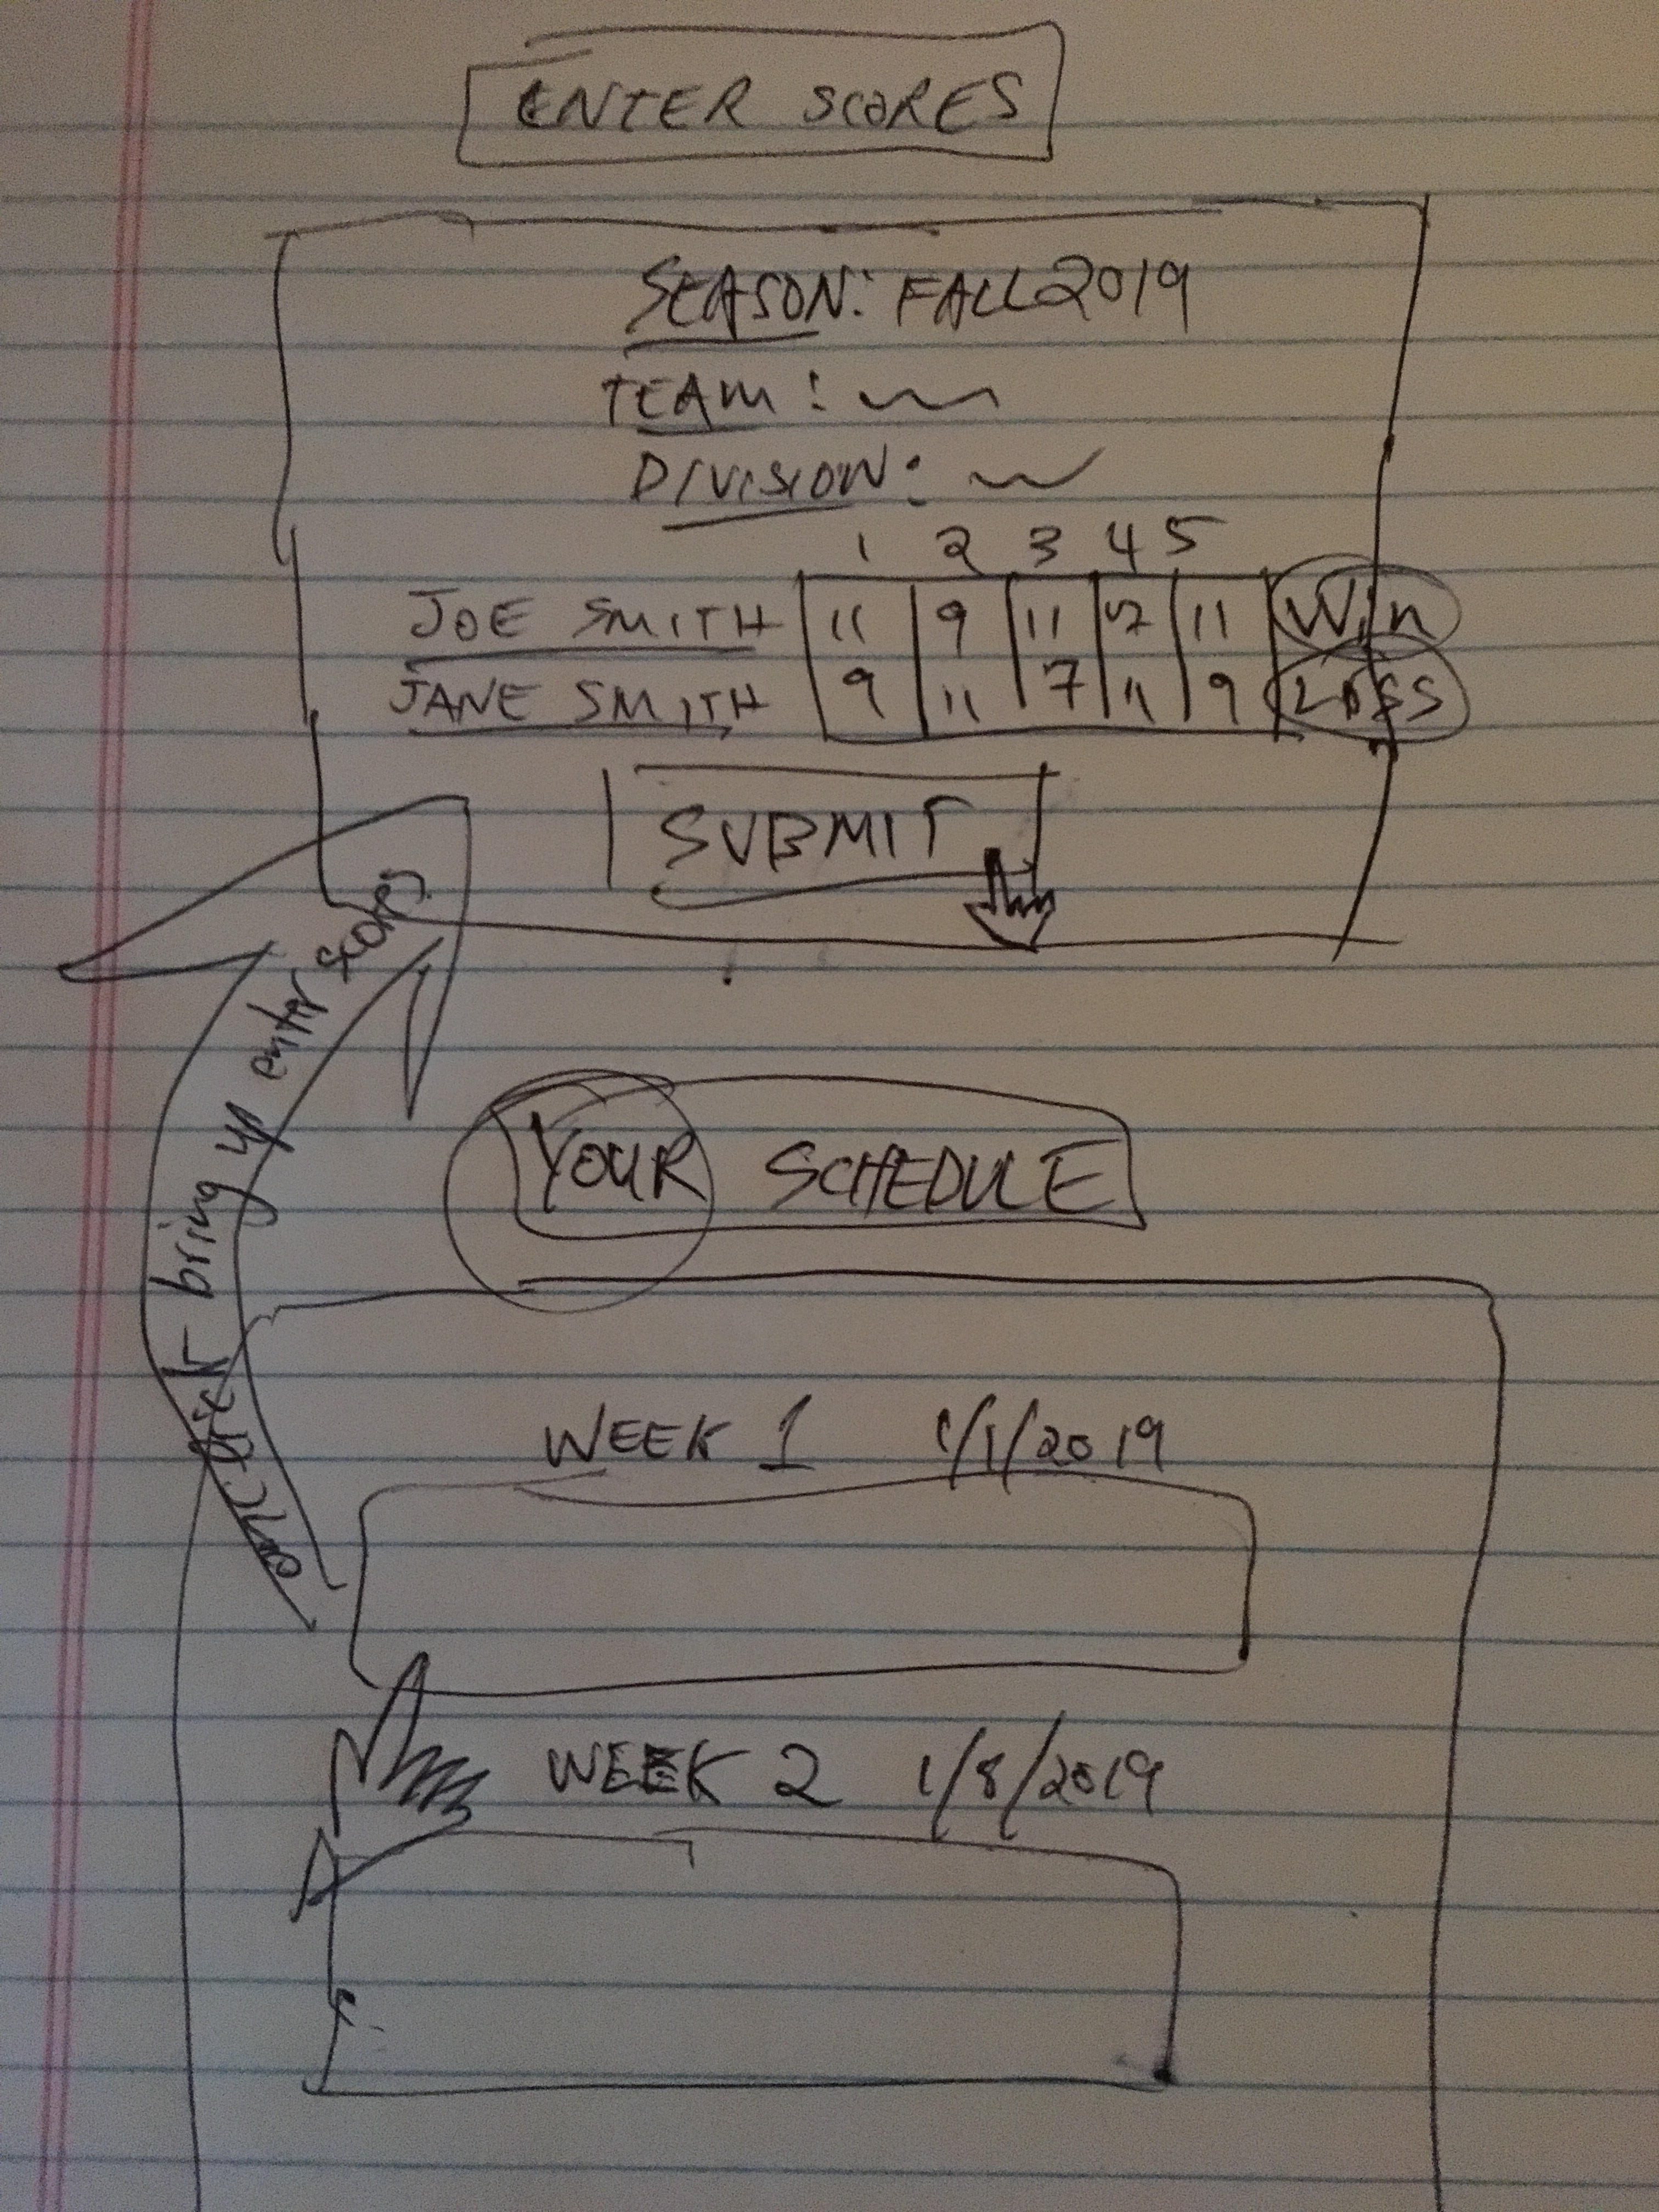 ENTER SCORES
SEASON: FALL 2019
TEAM:
DIVISION:
1 2 3 4 5
JOE SMITH 11 9 11 7 11 Win
JANE SMITH 9 11 7 11 9 Loss
SUBMIT
onclick bring up enter scores
YOUR SCHEDULE
WEEK 1 1/1/2019
WEEK 2 1/8/2019